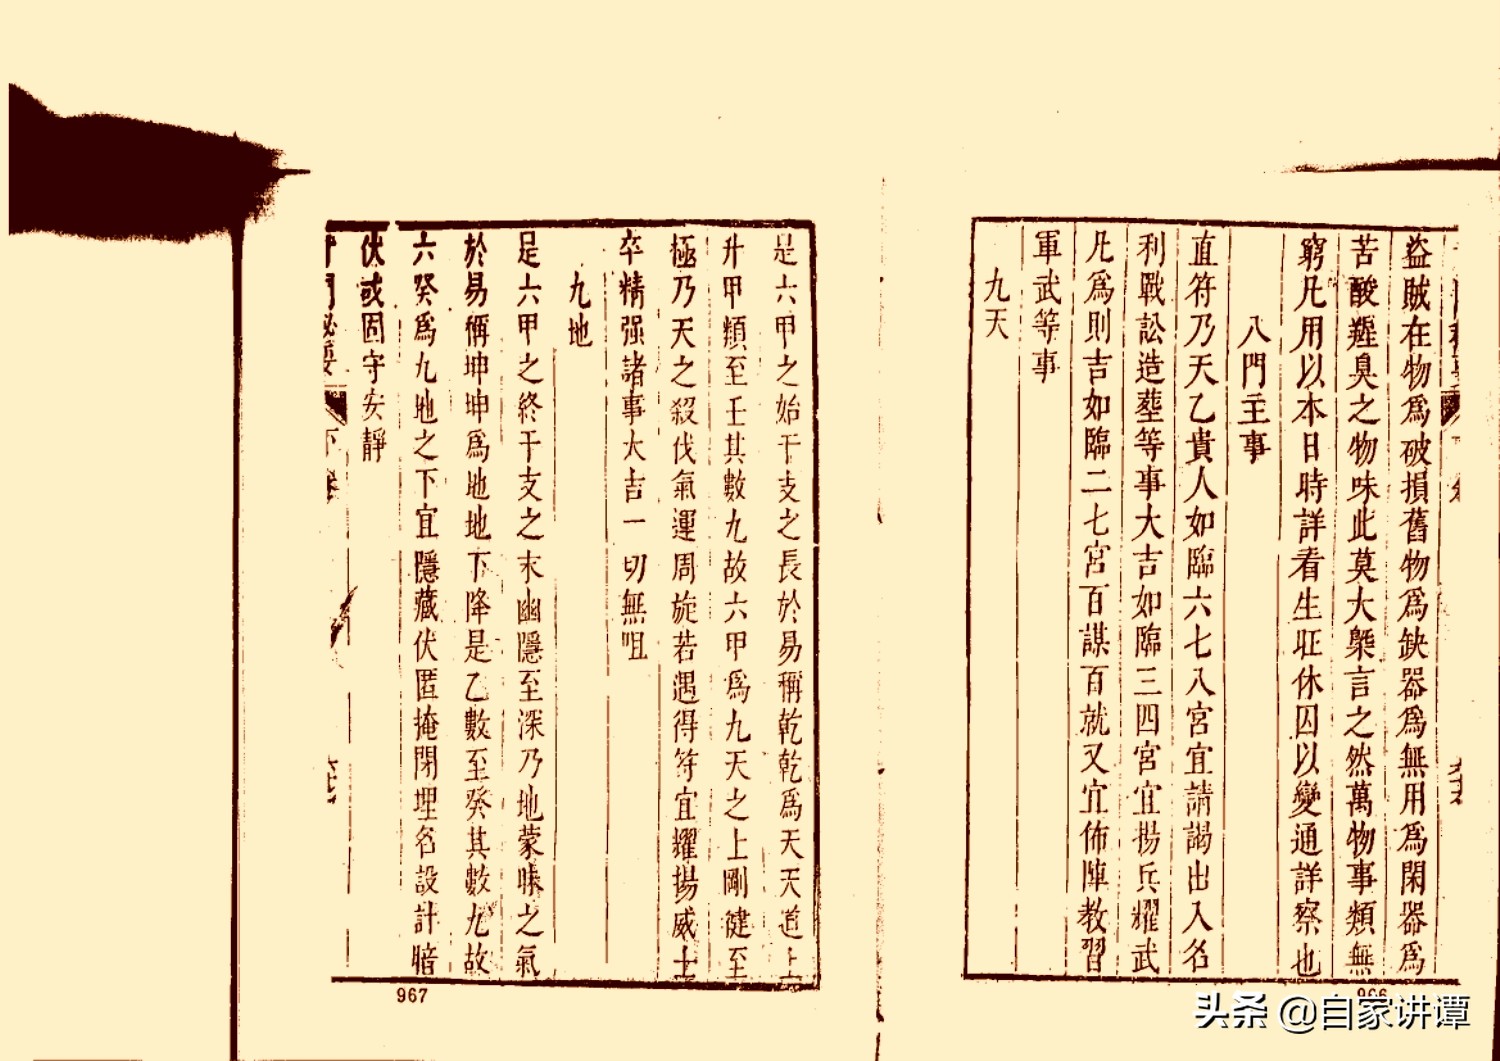 盜賊在物爲破損舊物爲缺器爲無用爲閑器爲
苦酸羶臭之物味此莫大槩言之然萬物事類無
窮凡用以本日時詳看生旺休囚以變通詳察也
八門主事
直符乃天乙貴人如臨六七八宮宜請謁出入名
利戰訟造塟等事大吉如臨三四宮宜揚兵耀武
凡爲則吉如臨二七宮百謀百就又宜佈陣教習
軍武等事
九天
966
是六甲之始干支之長於易稱乾乾爲天天道上
升甲類至壬其數九故六甲爲九天之上剛健至
極乃天之殺伐氣運周旋若遇得符宜耀揚威士
卒精强諸事大吉一切無咀
九地
足六甲之終干支之末幽隱至深乃地蒙昧之氣
於易稱坤坤爲地地下降是乙數至癸其數九故
六癸爲九地之下宜隱藏伏匿掩閉埋名設計暗
伏或固守安靜
下卷
967
头条 @自家讲谭